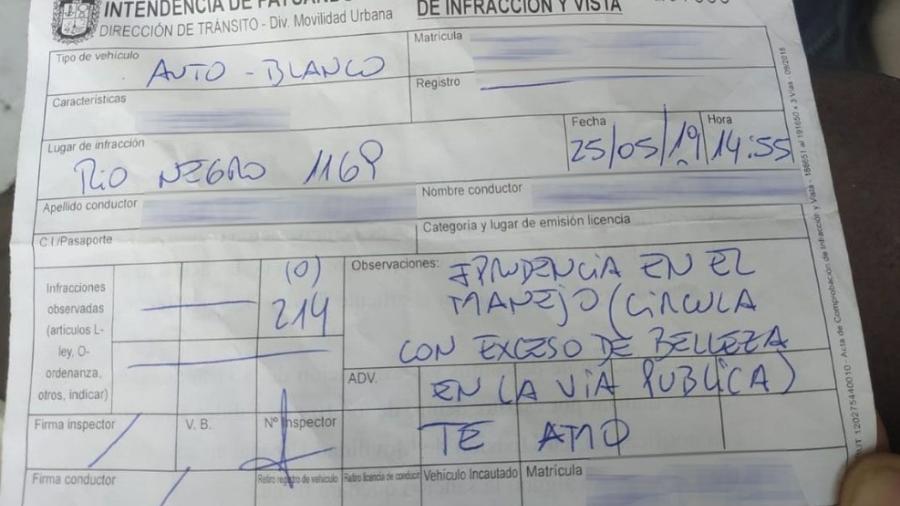 INTENDENCIA DE
DE INFRACCIÓN Y VISTA
DIRECCIÓN DE TRÁNSITO - Div. Movilidad Urbana
Tipo de vehículo
AUTO - BLANCO
Matrícula
Registro
Características
Lugar de infracción
RIO NEGRO 1169
Fecha
25/05/19
Hora
14:55
Apellido conductor
Nombre conductor
C.I/Pasaporte
Categoria y lugar de emisión licencia
Infracciones
observadas
(artículos L-
ley, O-
ordenanza,
otros, indicar)
(O)
214
Observaciones:
EN EL
MANEJO (CIRCULA
CON EXCESO DE BELLEZA
EN LA VIA PUBLICA)
ADV.
TE AMO
Firma inspector
V. B.
Nº Inspector
Firma conductor
Retiro registro de vehículo
Retiro licencia de conducir
Vehículo Incautado
Matrícula